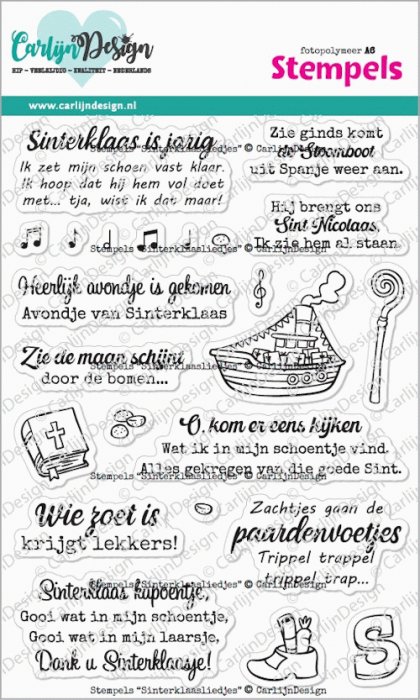 CarlijnDesign
HIP - VEELZIJDIG - KWALITEIT - NEDERLANDS
fotopolymeer A6
Stempels
www.carlijndesign.nl
Sinterklaas is jarig
Ik zet mijn schoen vast klaar.
Ik hoop dat hij hem vol doet
met... tja, wist ik dat maar!
Zie ginds komt
de Stoomboot
uit Spanje weer aan.
Hij brengt ons
Sint Nicolaas,
Ik zie hem al staan.
Stempels "Sinterklaasliedjes" © CarlijnDesign
Heerlijk avondje is gekomen
Avondje van Sinterklaas
Zie de maan schijnt
door de bomen...
O, kom er eens kijken
Wat ik in mijn schoentje vind.
Alles gekregen van die goede Sint.
Stempels "Sinterklaasliedjes" © CarlijnDesign
Wie zoet is
krijgt lekkers!
Zachtjes gaan de
paardenvoetjes
Trippel trappel
trippel trap...
Stempels "Sinterklaasliedjes" © CarlijnDesign
Sinterklaas kapoentje,
Gooi wat in mijn schoentje,
Gooi wat in mijn laarsje,
Dank u Sinterklaasje!
S
Stempels "Sinterklaasliedjes" © CarlijnDesign